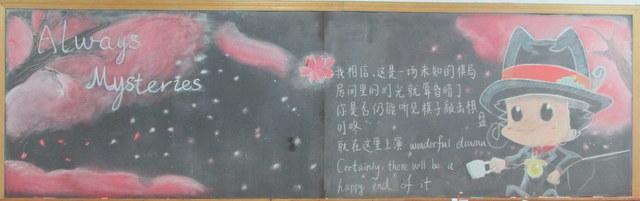 Always
Mysteries
我相信,这是一场未知的棋局
房间里的灯光就算昏暗了
你是否仍能听见棋子敲击棋盘
可咚
就在这里上演 wonderful drama
Certainly, there will be a
happy end of it